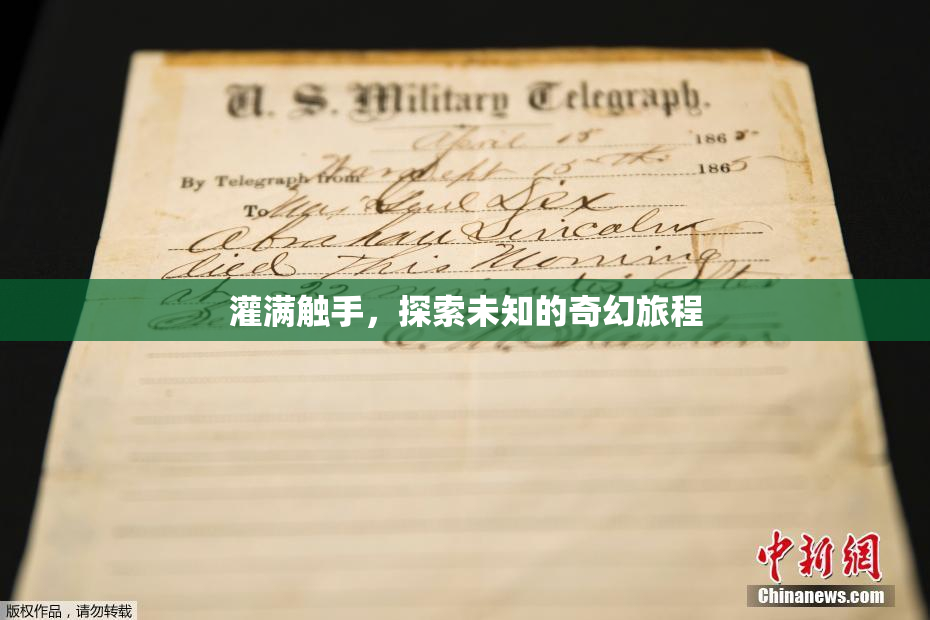 U. S. Military Telegraph.
April 15 1865
By Telegraph from War Dept 15th 1865
To Maj Genl Dix
Abraham Lincoln
died this morning
at 22 minutes after
灌满触手，探索未知的奇幻旅程
中新网
Chinanews.com
版权作品，请勿转载